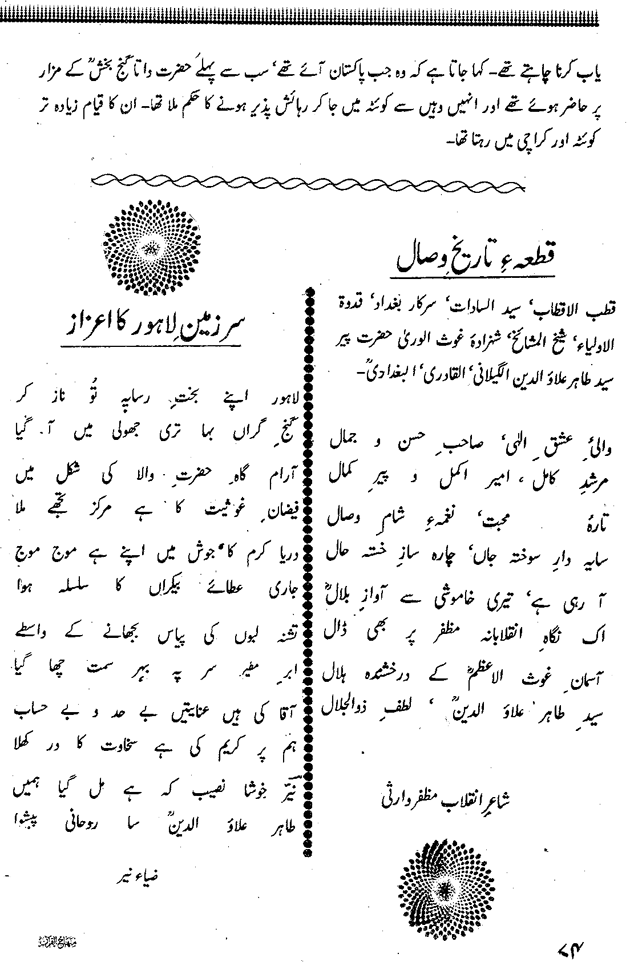 یاب کرنا چاہتے تھے۔ کہا جاتا ہے کہ وہ جب پاکستان آئے تھے‘ سب سے پہلے حضرت داتا گنج بخشؒ کے مزار
پر حاضر ہوئے تھے اور انہیں وہیں سے کوئٹہ میں جا کر رہائش پذیر ہونے کا حکم ملا تھا۔ ان کا قیام زیادہ تر
کوئٹہ اور کراچی میں رہتا تھا۔
قطعہءِ تاریخِ وصال
قطب الاقطاب‘ سید السادات‘ سرکار بغداد‘ قدوۃ
الاولیاء‘ شیخ المشائخ‘ شہزادۂ غوث الوریٰ حضرت پیر
سید طاہر علاؤ الدین الگیلانی‘ القادری‘ البغدادیؒ۔
والیِٔ عشقِ الٰہی‘ صاحبِ حسن و جمال
مرشدِ کامل، امیرِ اکمل و پیرِ کمال
تارۂ محبت‘ نغمہءِ شامِ وصال
سایہ دارِ سوختہ جاں‘ چارہ سازِ خستہ حال
آ رہی ہے‘ تیری خاموشی سے آوازِ بلالؓ
اک نگاہِ انقلابانہ مظفر پر بھی ڈال
آسمانِ غوث الاعظمؓ کے درخشندہ ہلال
سیدِ طاہر علاؤ الدینؒ‘ لطفِ ذوالجلال
شاعرِ انقلاب مظفر وارثی
سرزمینِ لاہور کا اعزاز
لاہور اپنے بختِ رسا پہ تُو ناز کر
گنجِ گراں بہا تری جھولی میں آ گیا
آرام گاہِ حضرتِ والا کی شکل میں
فیضانِ غوثیت کا ہے مرکز تجھے ملا
دریا کرم کا جوش میں اپنے ہے موج موج
جاری عطائے بیکراں کا سلسلہ ہوا
تشنہ لبوں کی پیاس بجھانے کے واسطے
ابرِ مطیر سر پہ بہر سمت چھا گیا
آقا کی ہیں عنایتیں بے حد و بے حساب
ہم پر کریم کی ہے سخاوت کا در کھلا
نیرؔ خوشا نصیب کہ ہے مل گیا ہمیں
طاہر علاؤ الدینؒ سا روحانی پیشوا
ضیاء نیر
منہاج القرآن
۷۴